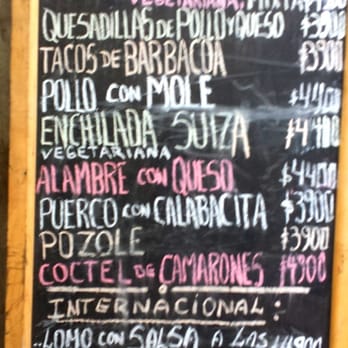 VEGETARIANA,
QUESADILLAS DE POLLO Y QUESO $3900
TACOS DE BARBACOA $3900
POLLO CON MOLE $4400
ENCHILADA SUIZA $4400
VEGETARIANA
ALAMBRE CON QUESO $4400
PUERCO CON CALABACITA $3900
POZOLE $3900
COCTEL DE CAMARONES $4300
INTERNACIONAL:
..LOMO CON SALSA A LAS